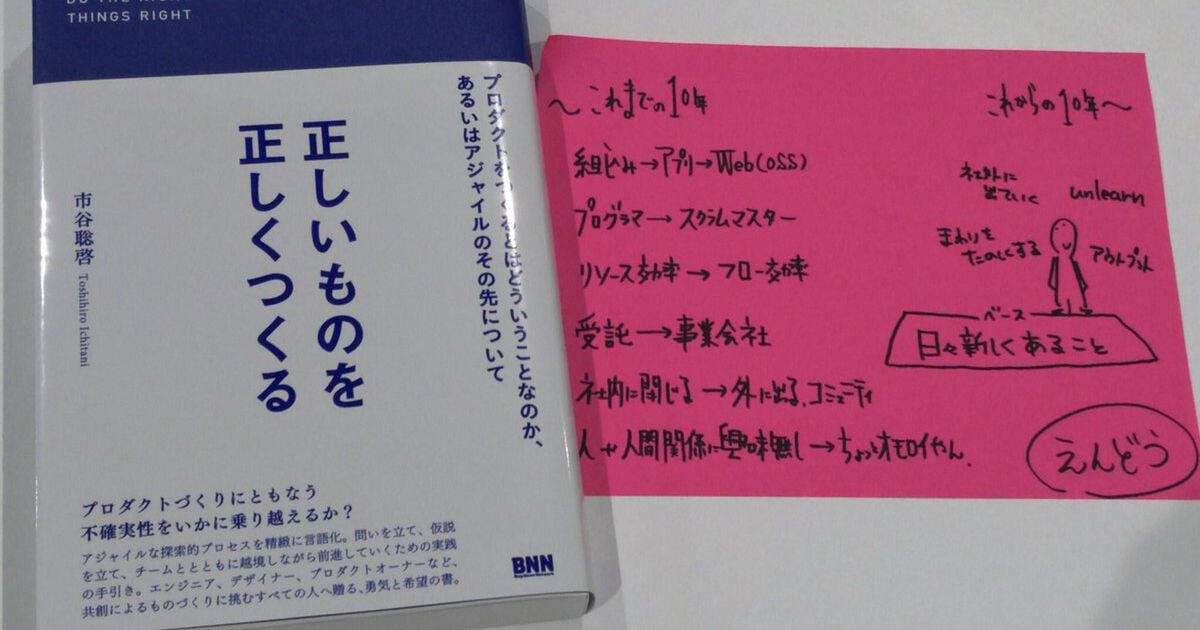 THINGS RIGHT
プロダクトをつくるとはどういうことなのか、
あるいはアジャイルのその先について
正しいものを
正しくつくる
市谷聡啓 Toshihiro Ichitani
プロダクトづくりにともなう
不確実性をいかに乗り越えるか?
アジャイルな探索的プロセスを精緻に言語化。問いを立て、仮説
を立て、チームとともに越境しながら前進していくための実践
の手引き。エンジニア、デザイナー、プロダクトオーナーなど、
共創によるものづくりに挑むすべての人へ贈る、勇気と希望の書。
BNN
〜これまでの10年
組込み→アプリ→Web(OSS)
プログラマ→スクラムマスター
リソース効率→フロー効率
受託→事業会社
社内に閉じる→外に出る、コミュニティ
人や人間関係に興味無し→ちょっとオモロイやん。
これからの10年〜
社外に
出ていく
unlearn
まわりを
たのしくする
アウトプット
ベース
日々新しくあること
えんどう